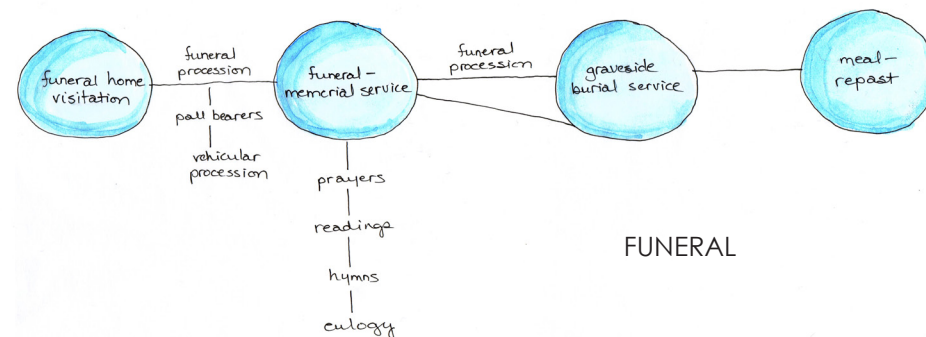 funeral home
visitation
funeral
procession
pall bearers
vehicular
procession
funeral -
memorial service
prayers
readings
hymns
eulogy
funeral
procession
graveside
burial service
meal -
repast
FUNERAL